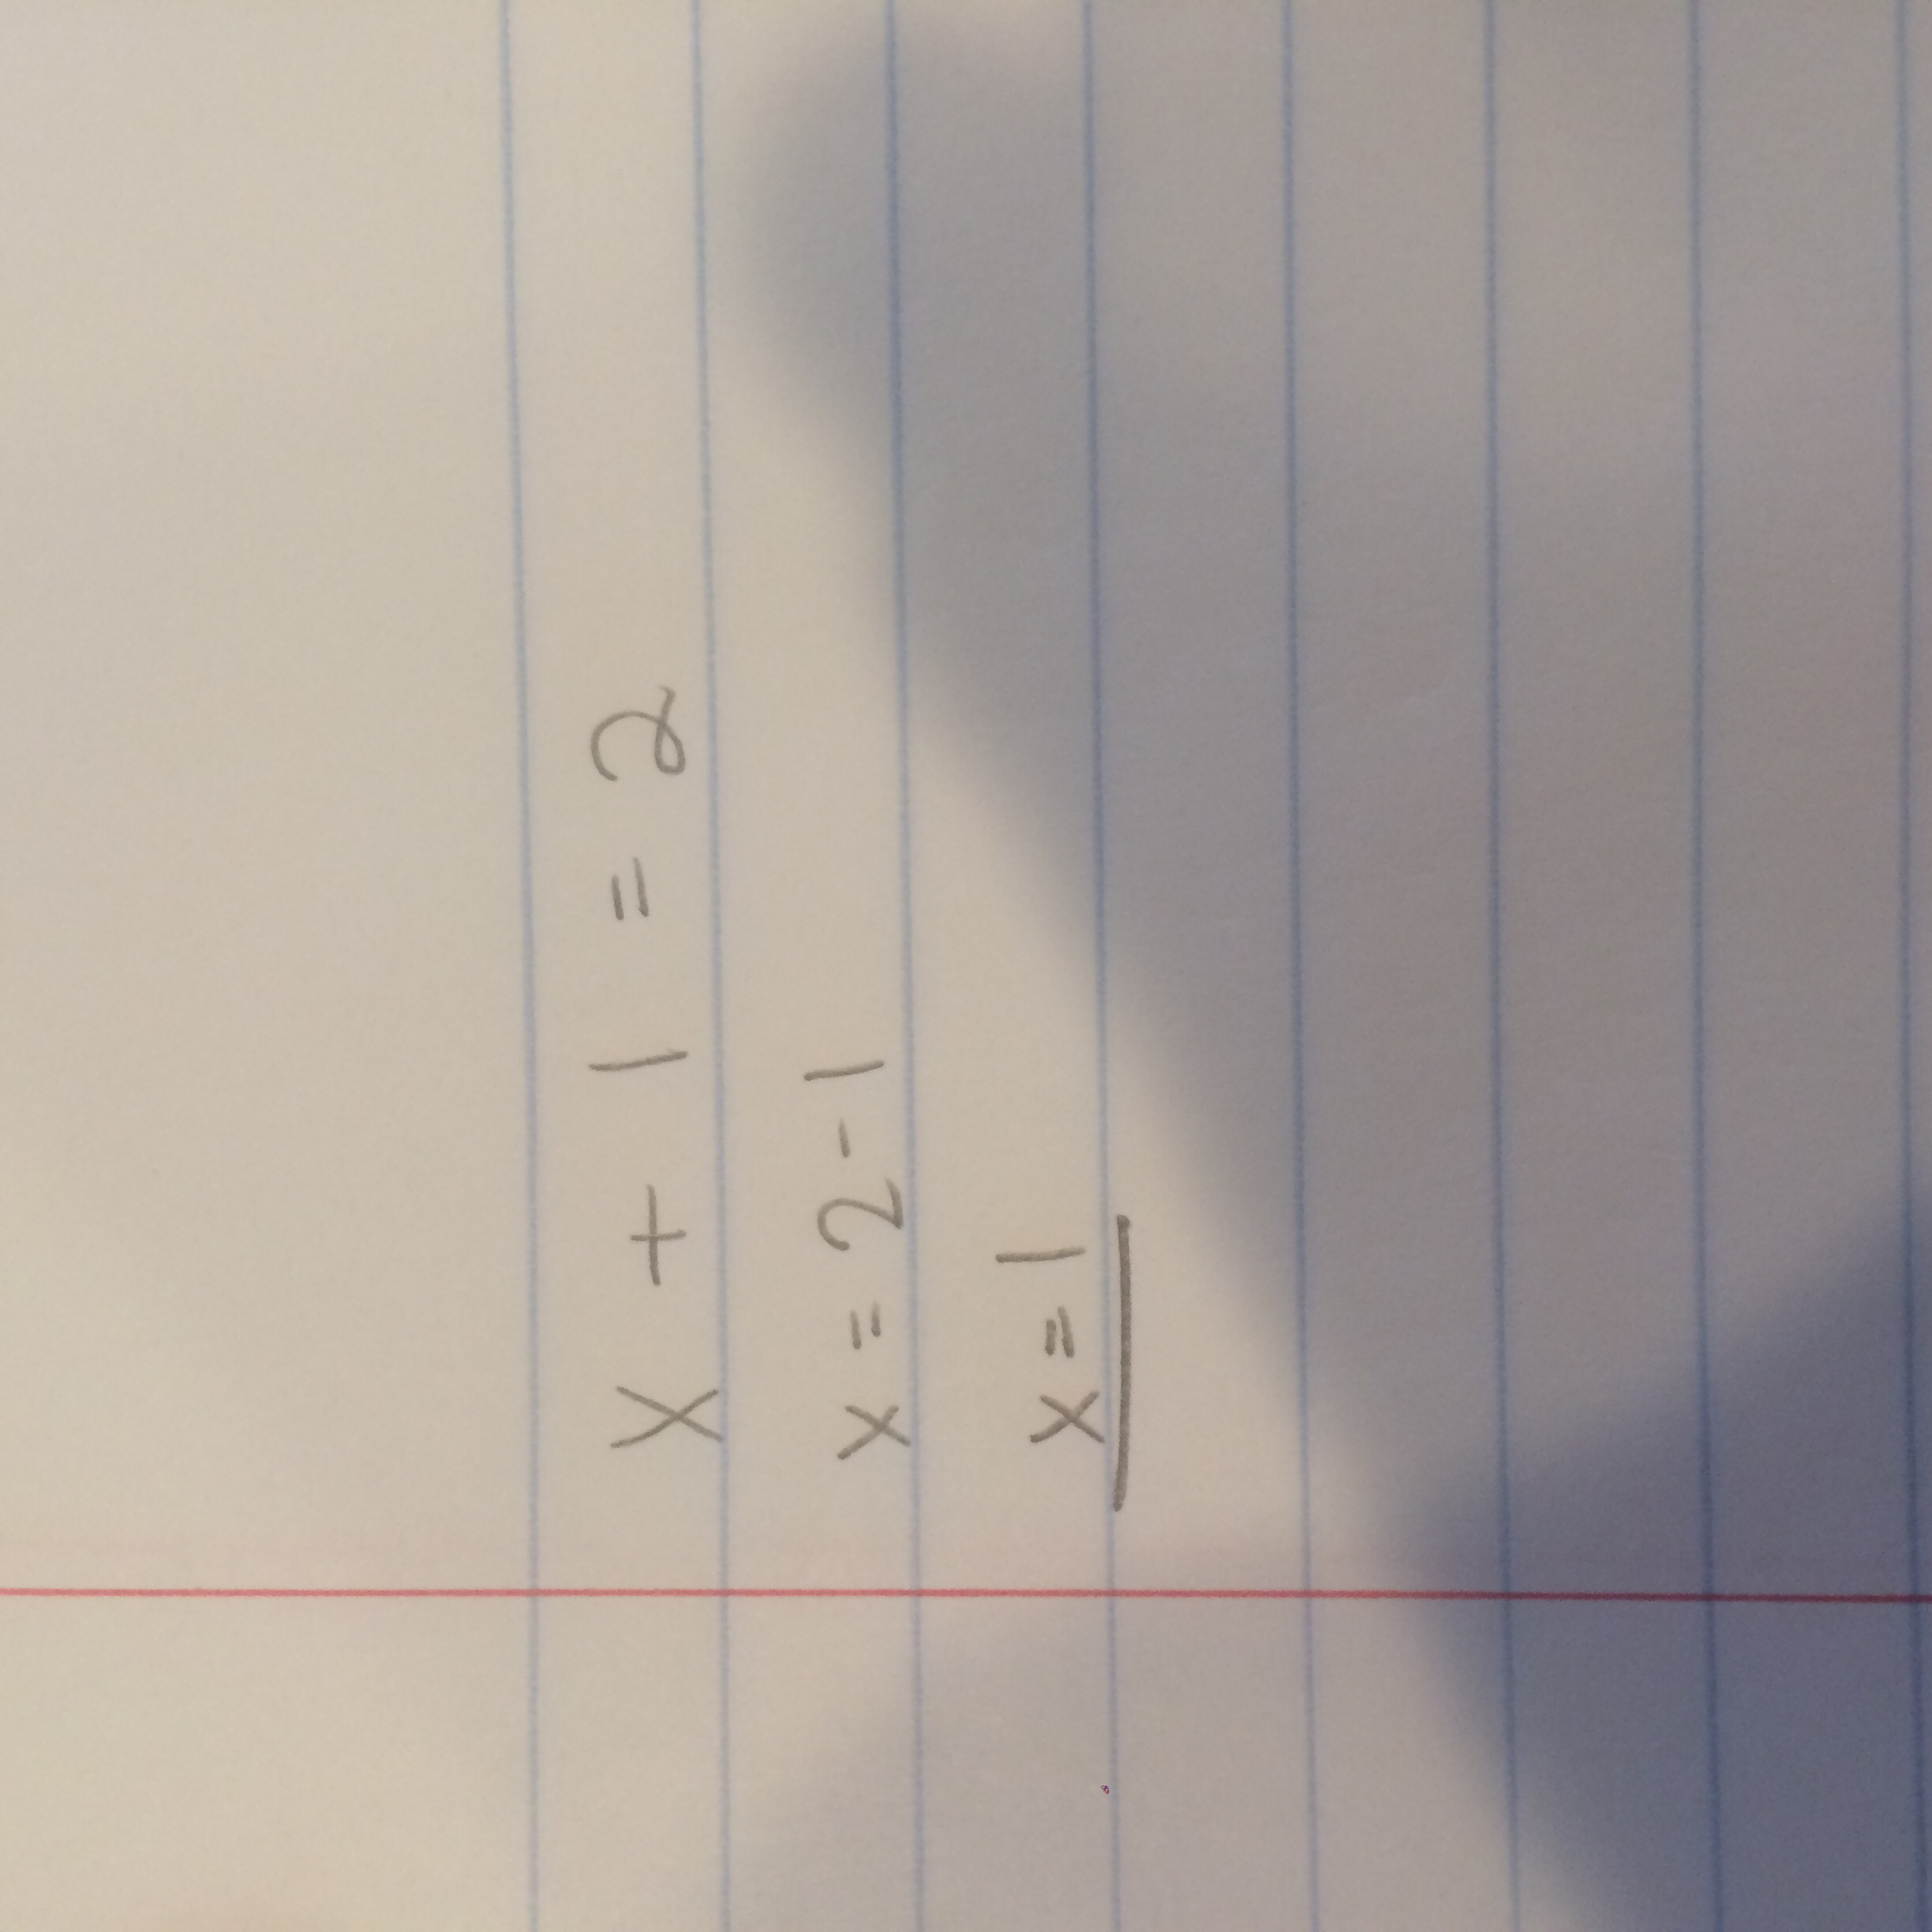 x + 1 = 2
x = 2 - 1
x = 1